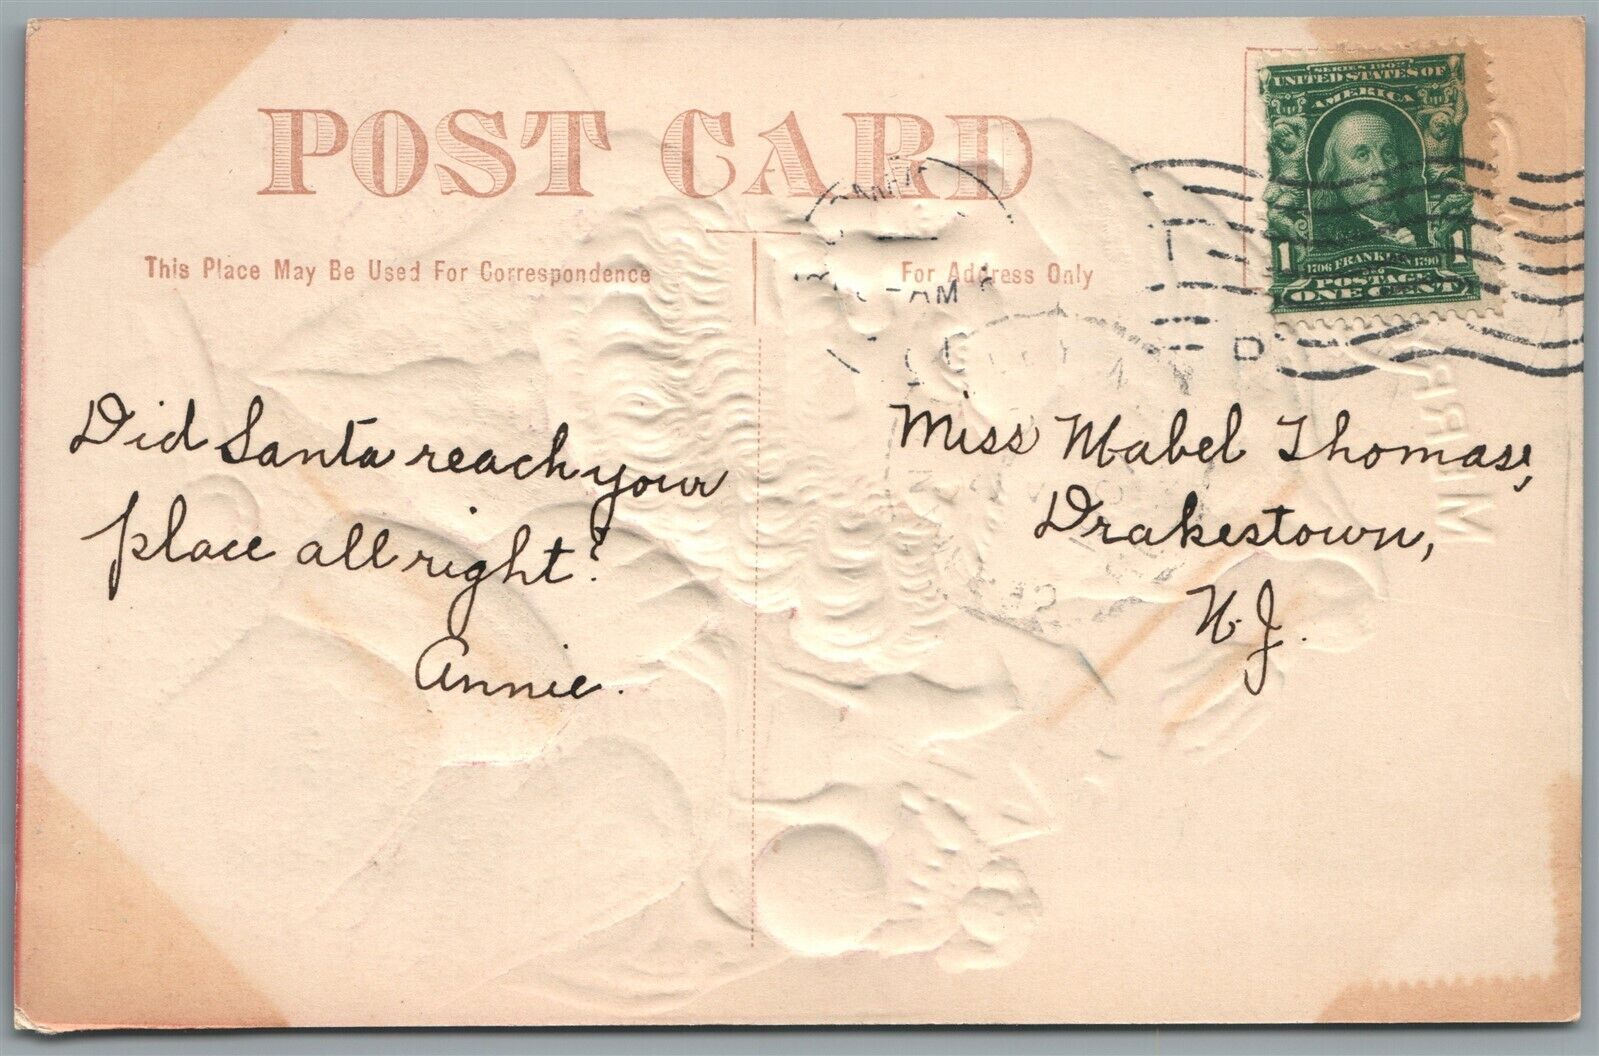 POST CARD
This Place May Be Used For Correspondence
For Address Only
SERIES 1902
UNITED STATES OF
AMERICA
1 1
1706 FRANKLIN 1790
POSTAGE
ONE CENT
AM
D
MERRY
Did Santa reach your
place all right?
Annie.
Miss Mabel Thomas,
Drakestown,
N.J.